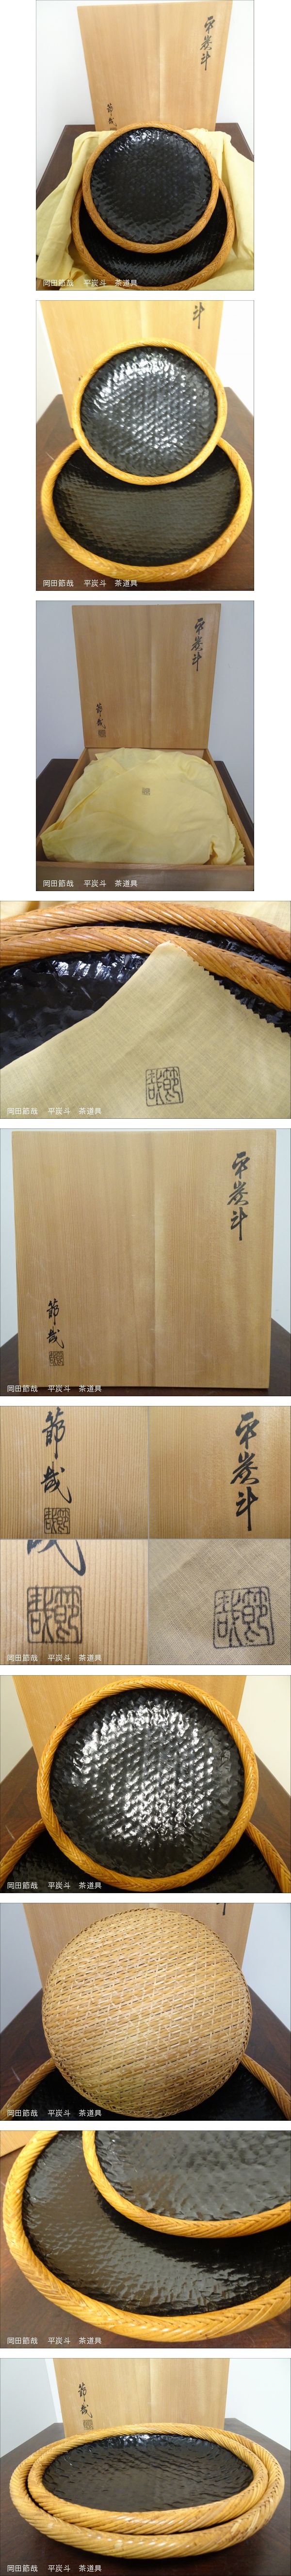 平炭斗
節哉
岡田節哉　平炭斗　茶道具
斗
岡田節哉　平炭斗　茶道具
平炭斗
節哉
岡田節哉　平炭斗　茶道具
節哉
岡田節哉　平炭斗　茶道具
平炭斗
節哉
岡田節哉　平炭斗　茶道具
節哉
平炭斗
哉
節哉
節哉
岡田節哉　平炭斗　茶道具
岡田節哉　平炭斗　茶道具
岡田節哉　平炭斗　茶道具
岡田節哉　平炭斗　茶道具
節哉
岡田節哉　平炭斗　茶道具